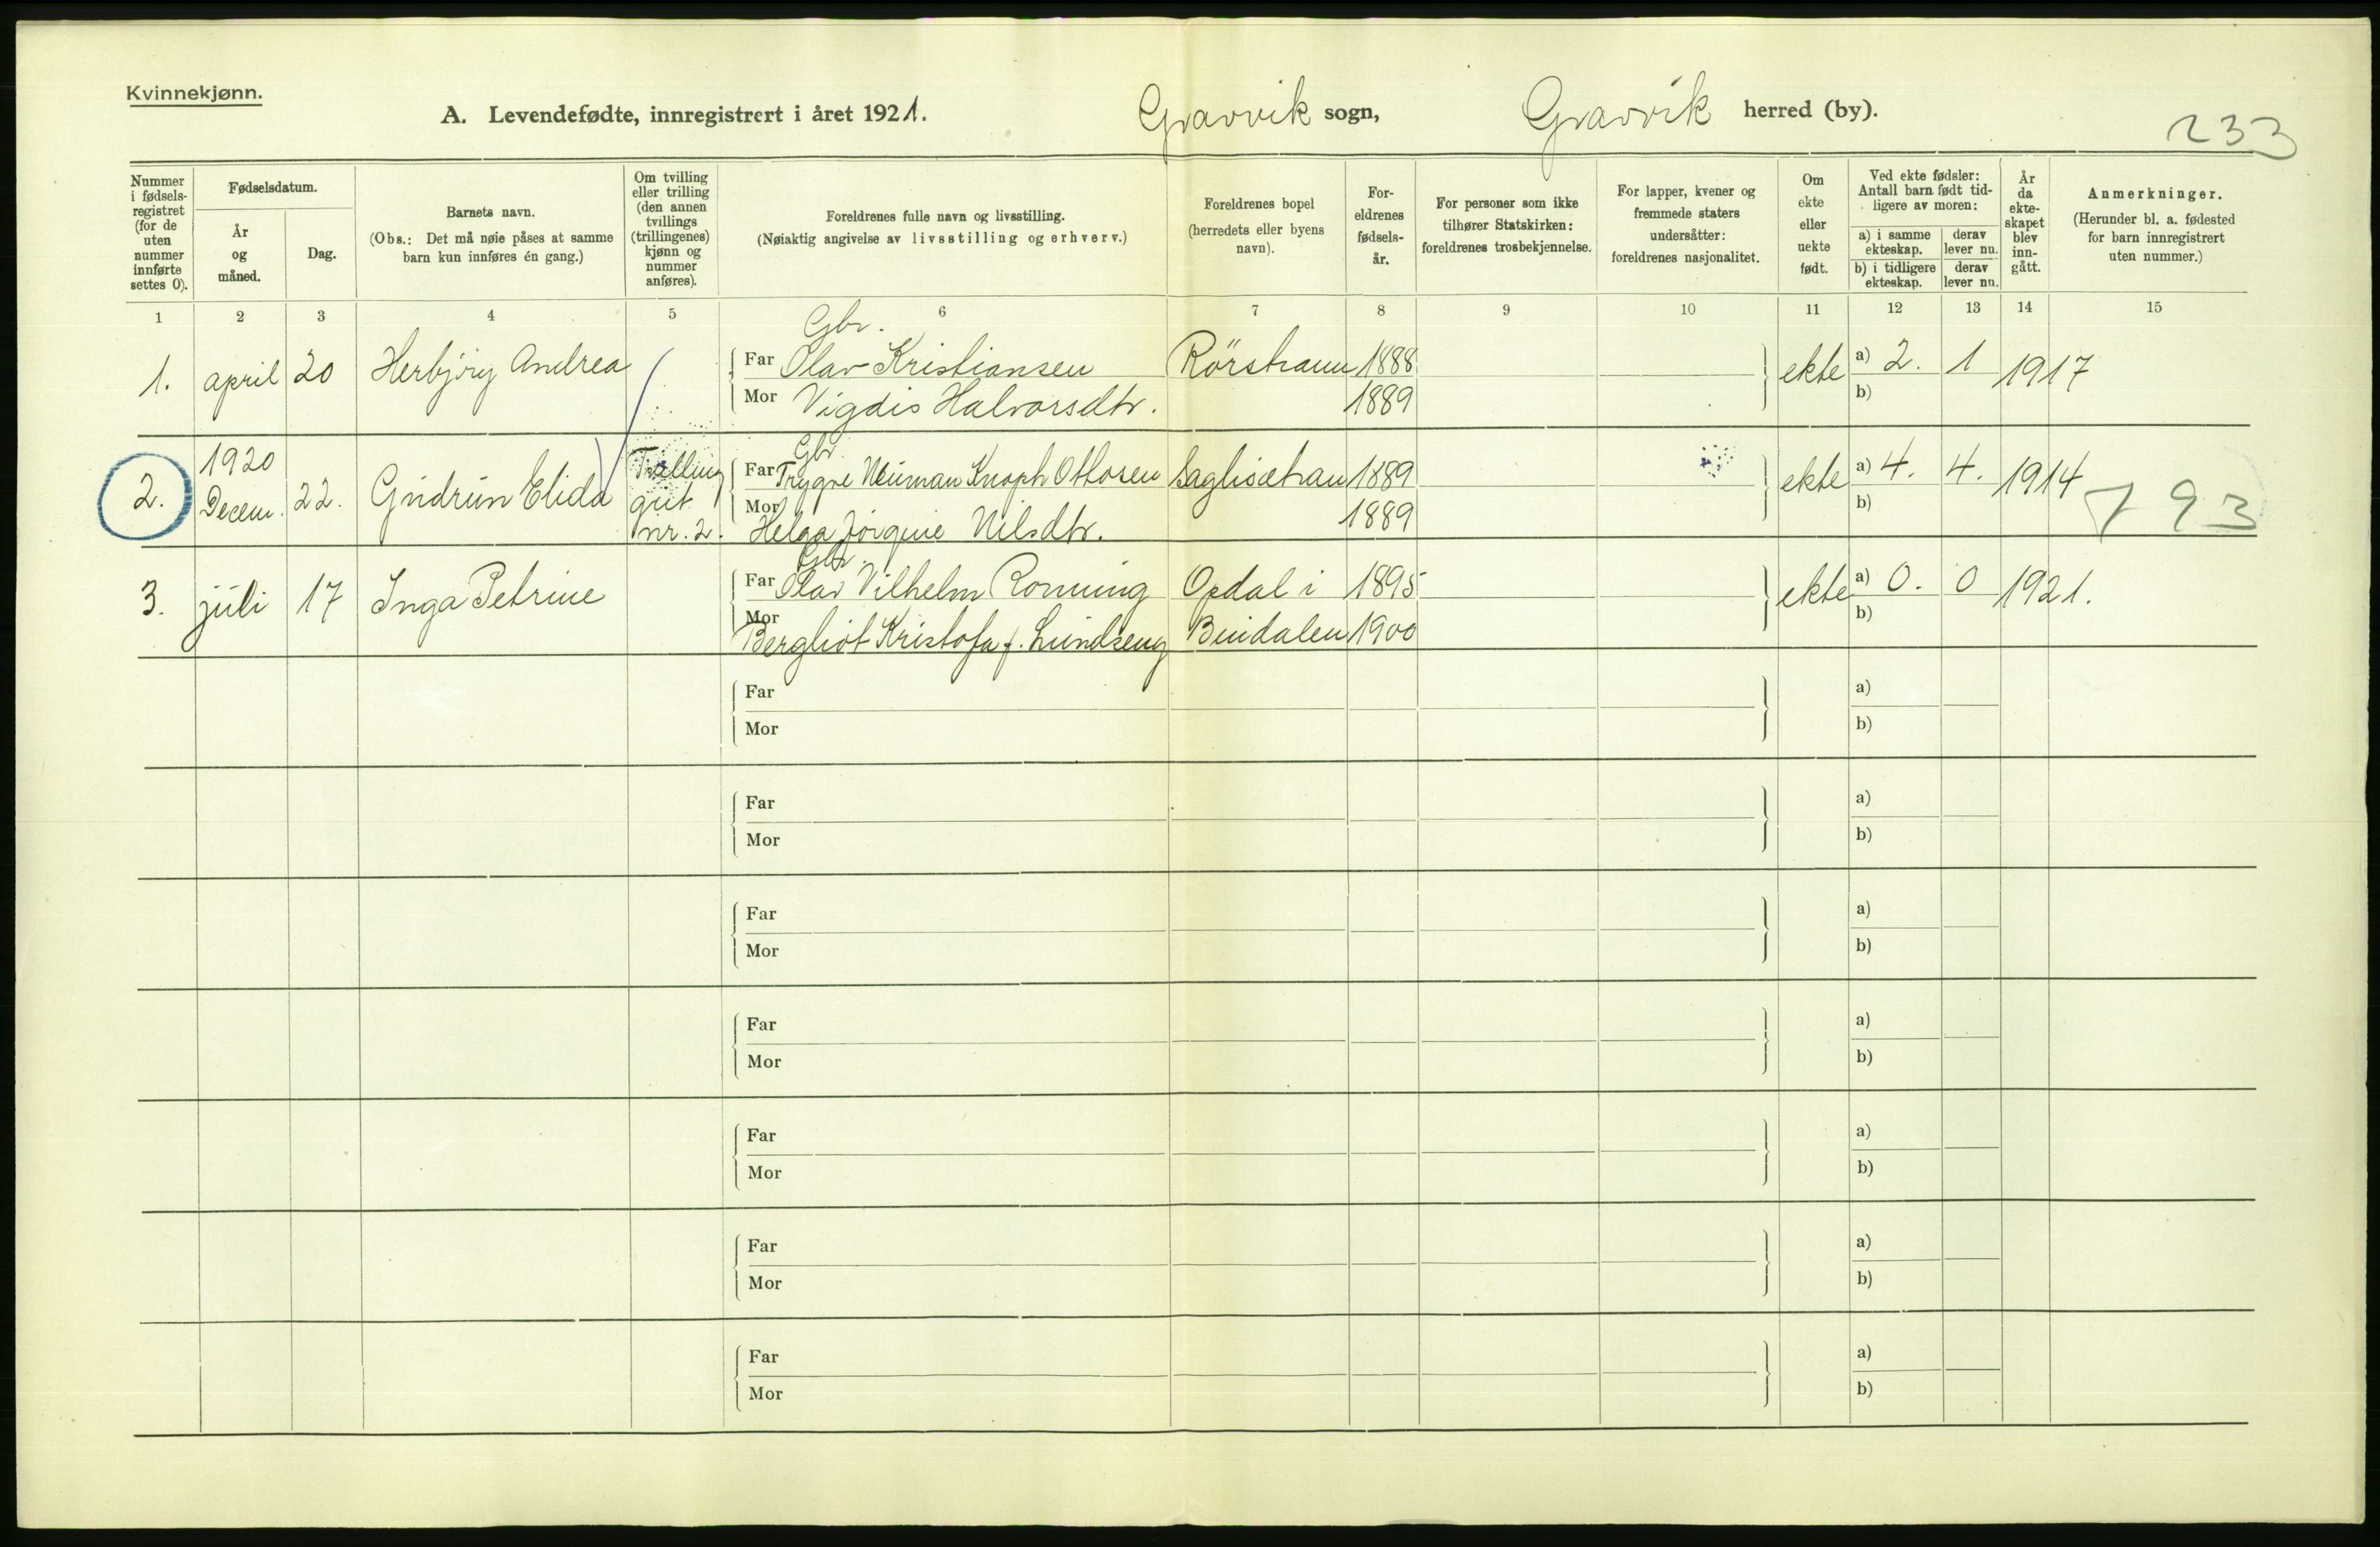 Kvinnekjønn.
A. Levendefødte, innregistrert i året 1921.
Gravvik sogn,
Gravvik herred (by).
233
Nummer i fødsels-registret (for de uten nummer innførte settes 0).
Fødselsdatum.
År og måned.
Dag.
Barnets navn.
(Obs.: Det må nøie påses at samme barn kun innføres én gang.)
Om tvilling eller trilling (den annen tvillings (trillingenes) kjønn og nummer anføres).
Foreldrenes fulle navn og livsstilling.
(Nøiaktig angivelse av livsstilling og erhverv.)
Foreldrenes bopel (herredets eller byens navn).
For-eldrenes fødsels-år.
For personer som ikke tilhører Statskirken: foreldrenes trosbekjennelse.
For lapper, kvener og fremmede staters undersåtter: foreldrenes nasjonalitet.
Om ekte eller uekte født.
Ved ekte fødsler: Antall barn født tid-ligere av moren:
a) i samme ekteskap.
derav lever nu.
b) i tidligere ekteskap.
derav lever nu.
År da ekte-skapet blev inn-gått.
Anmerkninger.
(Herunder bl. a. fødested for barn innregistrert uten nummer.)
1 2 3 4 5 6 7 8 9 10 11 12 13 14 15
Gbr.
1. april 20 Herbjörg Andrea Far Olav Kristiansen Rörstraum 1888 ekte a) 2. 1 1917
Mor Vigdis Halvorsdtr. 1889 b)
1920 Gbr.
2. Decem. 22. Gudrun Elida Tvilling gut nr. 2. Far Trygve Neuman Knoph Ottosen 1889 ekte a) 4. 4. 1914
Mor Helga Jörgine Nilsdtr. 1889 b)
793
Gbr.
3. juli 17 Inga Petrine Far Olav Vilhelm Ronning Opdal i 1895 ekte a) 0. 0 1921.
Mor Bergliot Kristofa f. Lundseng Bindalen 1900 b)
Far a)
Mor b)
Far a)
Mor b)
Far a)
Mor b)
Far a)
Mor b)
Far a)
Mor b)
Far a)
Mor b)
Far a)
Mor b)